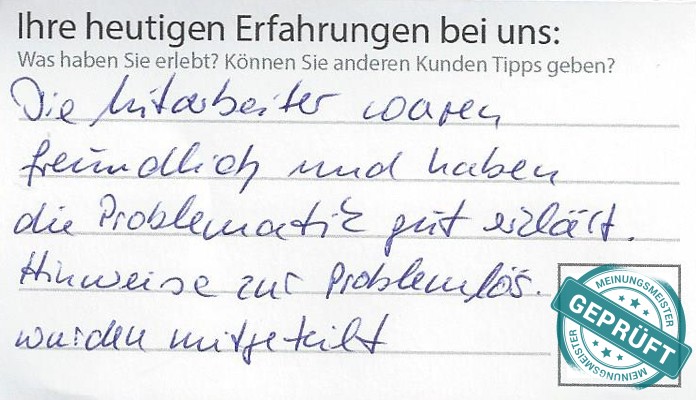 Ihre heutigen Erfahrungen bei uns:
Was haben Sie erlebt? Können Sie anderen Kunden Tipps geben?
Die Mitarbeiter waren
freundlich und haben
die Problematik gut erklärt.
Hinweise zur Problemlös.
wurden mitgeteilt
MEINUNGSMEISTER
GEPRÜFT
MEINUNGSMEISTER